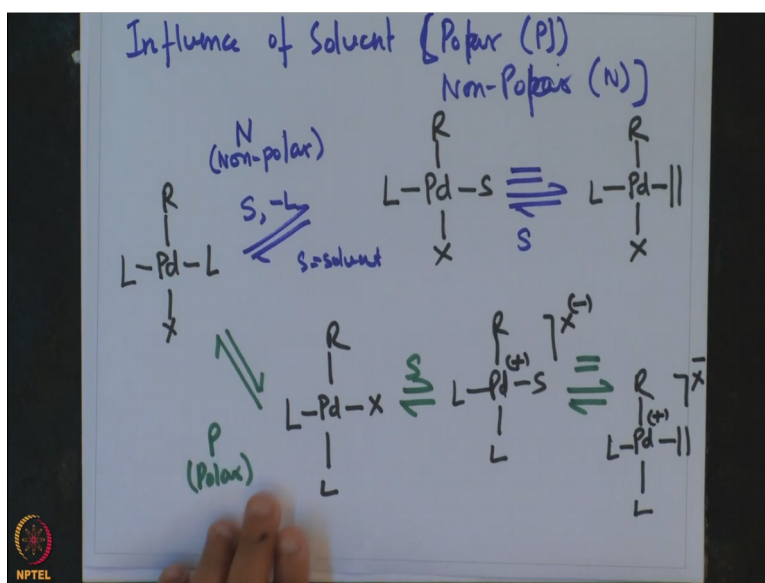 Influence of Solvent [Polar (P)
Non-Polar (N)]
N
(Non-polar)
S, -L
S=solvent
R
L-Pd-L
X
R
L-Pd-S
X
=
S
R
L-Pd-||
X
P
(Polar)
R
L-Pd-X
L
S
R
L-Pd-S
(+)
L
X(-)
=
R
L-Pd-||
(+)
L
X-
NPTEL